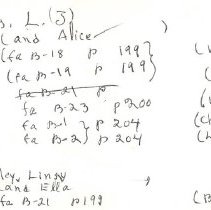 L. (J)
(and Alice )
(fa B-18 p 199)
(fa B-19 p 199)
fa B-21 p
fa B-23 p 200
fa B-1 } p 204
fa B-2 } p 204
ley, Lindy
and Ella
fa B-21 p 199 (B